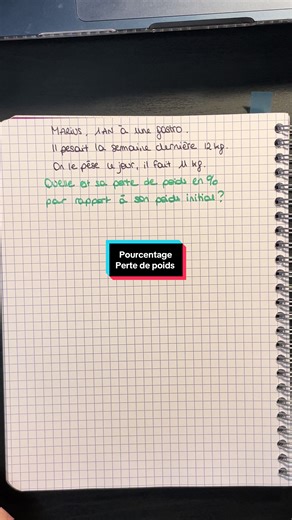 MARIUS, 1AN à une gastro.
Il pesait la semaine dernière 12 kg.
On le pèse ce jour, il fait 11 kg.
Quelle est sa perte de poids en %
par rapport à son poids initial ?
Pourcentage
Perte de poids